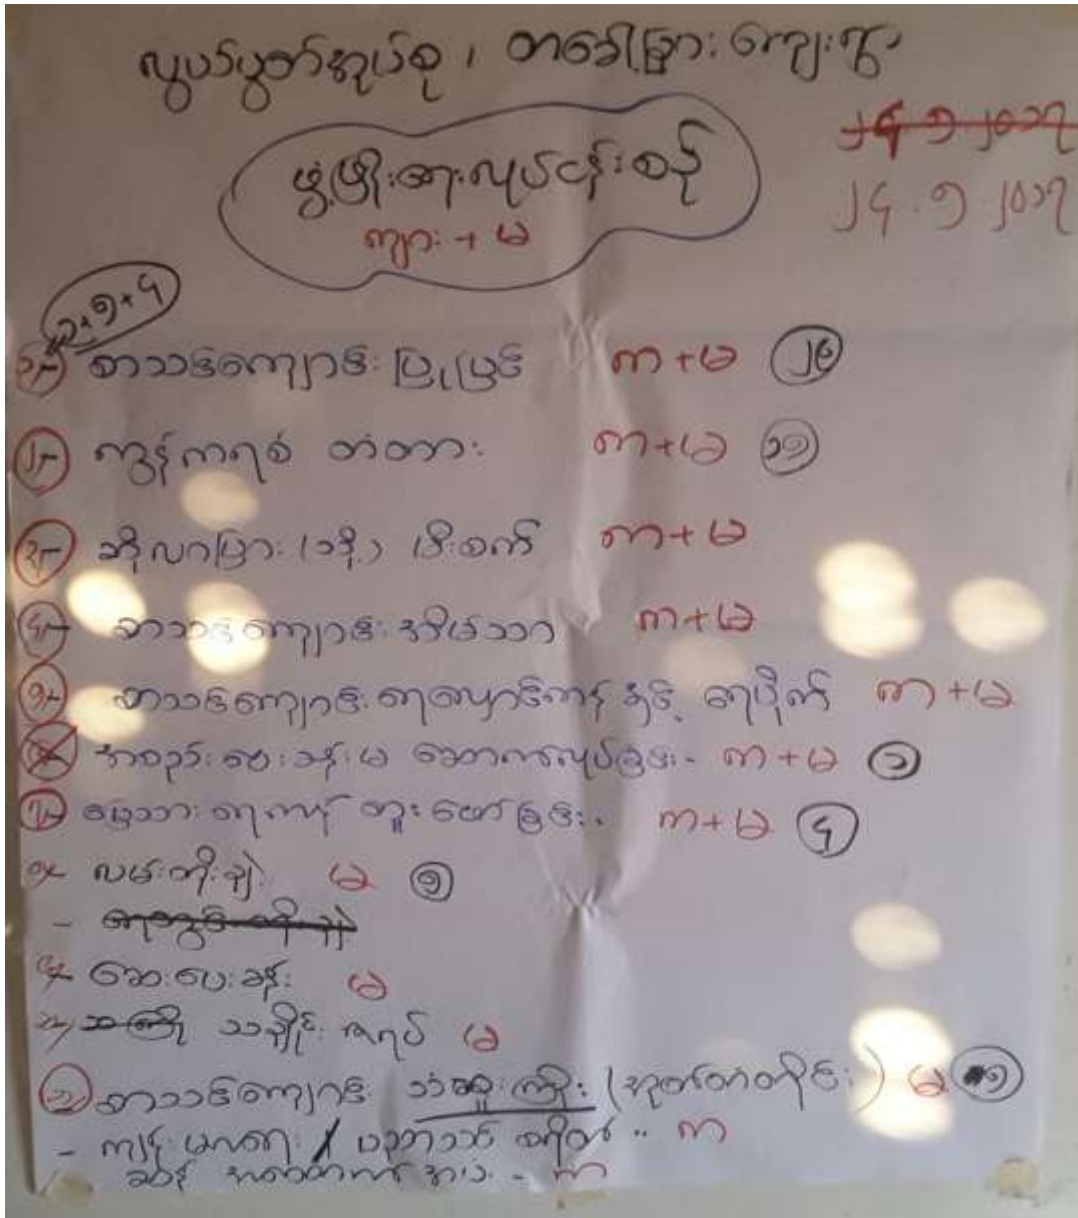 လွယ်ပွတ်အုပ်စု ၊ တခေါ်ခြား ကျေးရွာ
၂၄ ၅ ၂၀၁၇
ဖွံ့ဖြိုးရေးလုပ်ငန်းစဉ်
၂၄.၅.၂၀၁၇
ကျား + မ
၁+၅+၄
၁။ စာသင်ကျောင်း ပြုပြင် ကာ+မ ၂၆
၂။ ကွန်ကရစ် တံတား ကာ+မ ၁၅
၃။ ဆိုလာပြား (သို့) မီးစက် ကာ+မ
၄။ စာသင်ကျောင်း အိမ်သာ ကာ+မ
၅။ စာသင်ကျောင်း ရေလှောင်ကန် နှင့် ရေပိုက် ကာ+မ
အစည်းဝေးခန်းမ ဆောက်လုပ်ခြင်း - ကာ+မ ၁
၇။ မြေသား ရေကန် တူးဖော်ခြင်း ကာ+မ ၄
၈။ လမ်းတိုးချဲ့ မ ၅
၉။ ဆေးပေးခန်း မ
၁၀။ သချိုင်း ဇရပ် မ
စာသင်ကျောင်း သံဆူးကြိုး (အုတ်တံတိုင်း) မ ၅
- ကျန်းမာရေး / ပညာသင် စရိတ် .. ကာ